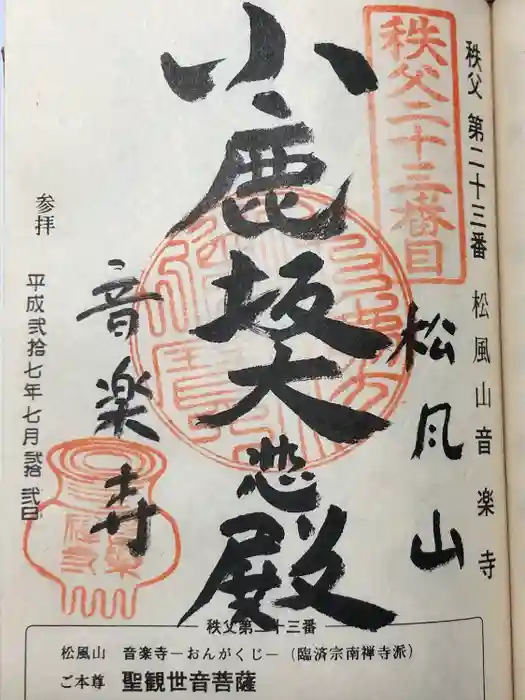 秩父 第二十三番 松風山 音楽寺
秩父二十三番目
松風山
小鹿坂大悲殿
音楽寺
参拝
平成弐拾七年七月弐拾弐日
秩父第二十三番
松風山 音楽寺―おんがくじ―(臨済宗南禅寺派)
ご本尊 聖観世音菩薩